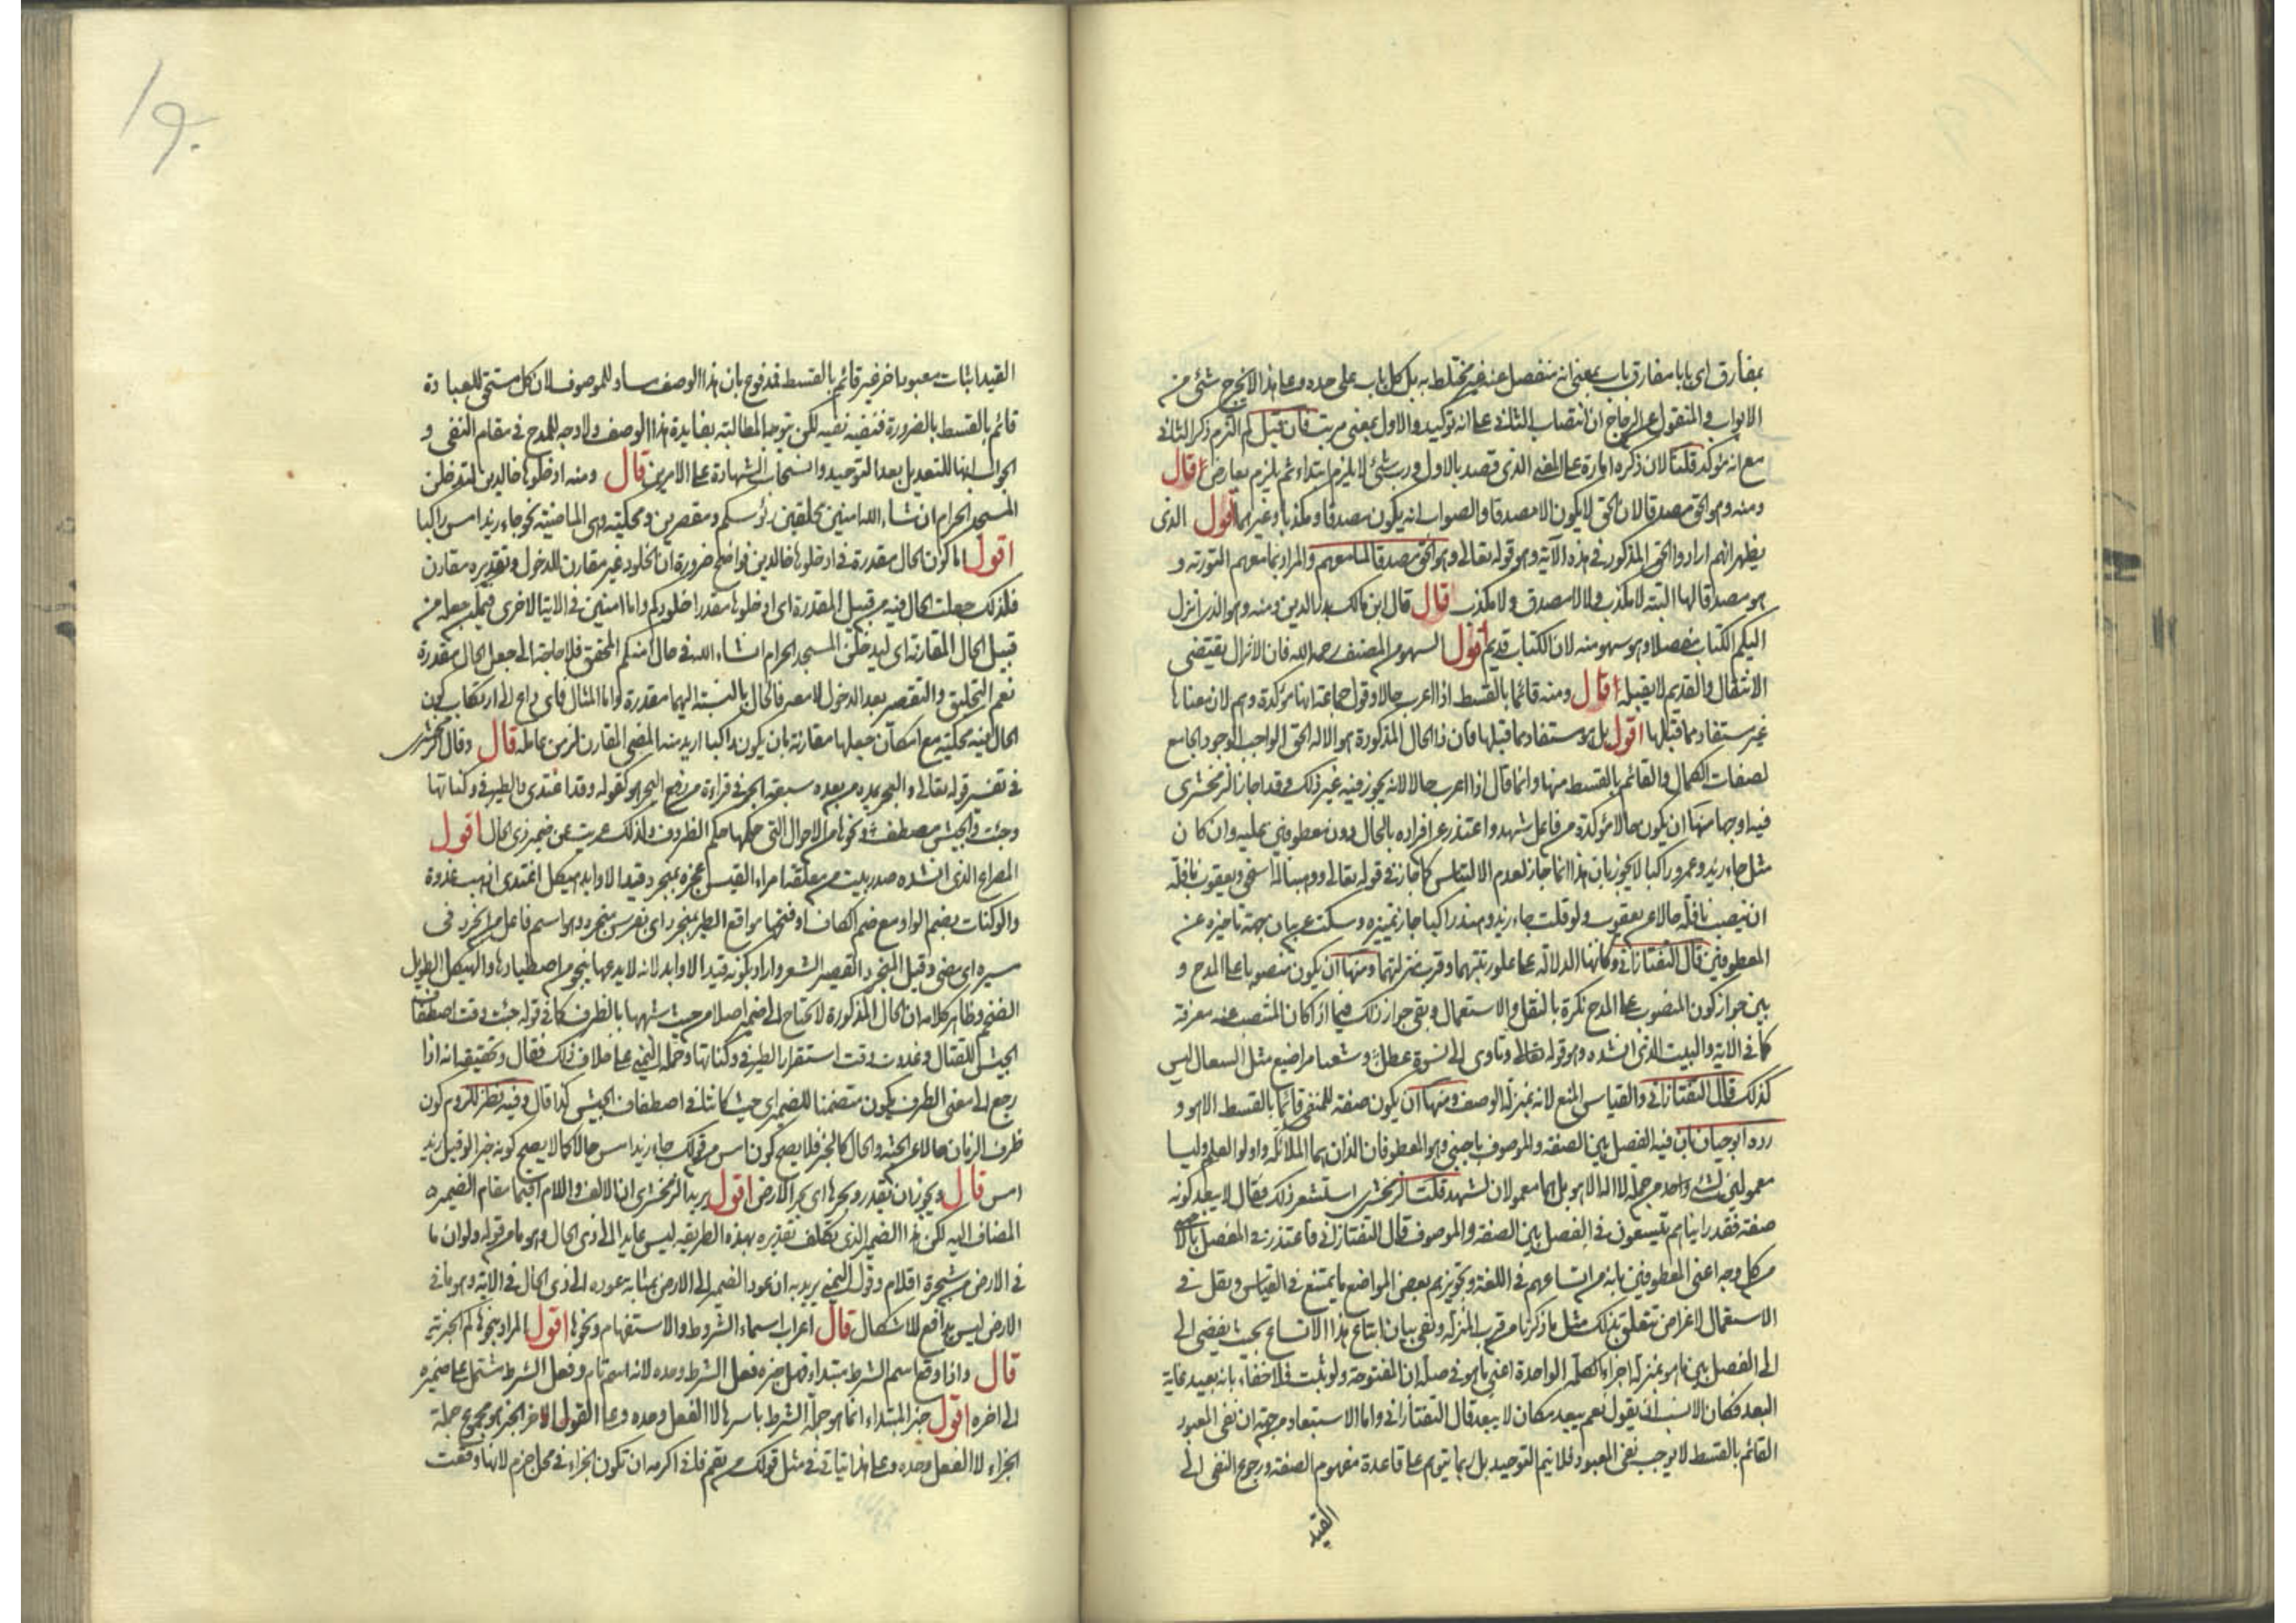 بمفارق اى بابا مفارق باب بمعنى انه منفصل عنه غير مختلط به بل كل باب على حده وعلى هذا لا يخرج شئ من
الابواب والمنقول عن الزجاج ان انتصاب الثانى على انه توكيد والاول بمعنى مرتب فان قيل لم التزم ذكر الثانى
مع انه مؤكد قلنا لان ذكره امارة على المعنى الذى قصد بالاول ورب شئ لا يلزم ابتداء ثم يلزم بعارض قال
ومنه وهو الحق مصدقا لان الحق لا يكون الا مصدقا والصواب انه يكون مصدقا ومكذبا وغيرهما اقول الذى
يظهر انهم ارادوا الحق المذكور فى هذه الآية وهو قوله تعالى وهو الحق مصدقا لما معهم والمراد بما معهم التورية و
هو مصدقا لها البتة لا مكذب ولا لا مصدق ولا مكذب قال قال ابن مالك بدر الدين ومنه وهو الذى انزل
اليكم الكتاب مفصلا وهو سهو منه لان الكتاب قديم اقول السهو من المصنف رحمه الله فان الانزال يقتضى
الانتقال والقديم لا يقبله قال ومنه قائما بالقسط اذا اعرب حالا وقول جماعة انها مؤكدة وهم لان معناها
غير مستفاد مما قبلها اقول بل هو مستفاد مما قبلها فان ذا الحال المذكورة هو الاله الحق الواجب الوجود الجامع
لصفات الكمال والقائم بالقسط منها وانما قال اذا اعرب حالا لانه يجوز فيه غير ذلك وقد اجاز الزمخشرى
فيه اوجها منها ان يكون حالا مؤكدة من فاعل شهد واعتذر عن افراده بالحال دون معطوفين عليه وان كان
مثل جاء زيد وعمرو راكبا لا يجوز بان هذا انما جاز لعدم الالتباس كما جاز فى قوله تعالى ووهبنا له اسحق ويعقوب نافلة
ان ينصب نافلة حالا عن يعقوب ولو قلت جاء زيد وهند راكبا جاز لتميزه وسكت عن بيان جهة تاخيره عن
المعطوفين قال التفتازانى وكانها الدلالة على علو رتبتهما وقرب منزلتهما ومنها ان يكون منصوبا على المدح و
بين جواز كون المنصوب على المدح نكرة بالنقل والاستعمال وبقى جواز ذلك فيما اذا كان المنتصب عنه معرفة
كما فى الآية والبيت الذى انشده وهو قوله وتاوى الى نسوة عطل وشعثا مراضيع مثل السعال ليس
كذلك قال التفتازانى والقياس المنع لانه بمنزلة الوصف ومنها ان يكون صفة للمنفى قائما بالقسط الا هو و
رده ابو حيان بان فيه الفصل بين الصفة والموصوف باجنبى وهو المعطوفان اللذان هما الملائكة واولوا العلم وليسا
معمولين لشئ واحد من جملة لا اله الا هو بل هما معمولان لشهد قلت الزمخشرى استشعر ذلك فقال لا يبعد كونه
صفة فقد رايناهم يتسعون فى الفصل بين الصفة والموصوف قال التفتازانى فاعتذر فى الفصل بالاجنبى
من كل وجه اعنى المعطوفين بانه من اتساعهم فى اللغة وتجويزهم بعض المواضع ما يمتنع فى القياس ويقل فى
الاستعمال لاغراض تتعلق بذلك مثل ما ذكرنا من قرب المنزلة وبقى بيان اتباع هذا الاتساع بحيث يفضى الى
الى الفصل بين ما هو بمنزلة اجزاء الكلمة الواحدة اعنى ما هو فى صلة ان المفتوحة ولو ثبت فلا خفاء بانه بعيد غاية
البعد فكان الانسب ان يقول نعم يبعد مكان لا يبعد قال التفتازانى واما الاستبعاد من جهة ان نفى المعبود
القائم بالقسط لا يوجب نفى المعبود فلا يتم التوحيد بل ربما يتوهم على قاعدة مفهوم الصفة ورجوع النفى الى
القيد
١٩٠
القيد اثبات معبود اخر غير قائم بالقسط فمدفوع بان هذا الوصف مساو للموصوف لان كل مستحق للعبادة
قائم بالقسط بالضرورة فنفيه نفيه لكن يتوجه المطالبة بفايدة هذا الوصف ولا وجه للمدح فى مقام النفى و
الجواب انها للتعديل بعد التوحيد وانسحاب الشهادة على الامرين قال ومنه ادخلوها خالدين لتدخلن
المسجد الحرام ان شاء الله امنين محلقين رؤسكم ومقصرين ومحكية وهى الماضية نحو جاء زيد امس راكبا
اقول اما كون الحال مقدرة فى ادخلوها خالدين فواضح ضرورة ان الخلود غير مقارن للدخول وتقديره مقارن
فلذلك جعلت الحال فيه من قبيل المقدرة اى ادخلوها مقدرا خلودكم واما امنين فى الآية الاخرى فيمكن جعله من
قبيل الحال المقارنة اى ليدخلن المسجد الحرام ان شاء الله فى حال امنكم المحقق فلا حاجة الى جعل الحال مقدرة
نعم التحليق والتقصير بعد الدخول لا معه فالحال بالنسبة اليهما مقدرة واما المثال فاى داع الى ارتكاب كون
الحال فيه محكية مع امكان جعلها مقارنة بان يكون راكبا اريد منه المضى المقارن لزمن عامله قال وقال الزمخشرى
فى تفسير قوله تعالى والبحر يمده من بعده سبعة ابحر فى قراءة من رفع البحر هو كقوله وقد اغتدى والطير فى وكناتها
وجئت والجيش مصطف ونحوها من الاحوال التى حكمها حكم الظروف ولذلك عريت عن ضمير ذى الحال اقول
المصراع الذى انشده صدر بيت من معلقة امراء القيس عجزه بمنجرد قيد الاوابد هيكل اغتدى اذهب غدوة
والوكنات بضم الواو مع ضم الكاف او فتحها مواقع الطير بمنجرد اى بفرس منجرد وهو اسم فاعل من انجرد فى
سيره اى مضى وقيل المنجرد القصير الشعر واراد بكونه قيد الاوابد لانه لا يدعها ينجو من اصطيادها والهيكل الطويل
الضخم وظاهر كلامه ان الحال المذكورة لا تحتاج الى ضمير اصلا من حيث شبهها بالظرف كما فى قوله جئت وقت اصطفاف
الجيش للقتال وغدوت وقت استقرار الطير فى وكناتها وحمله اليمنى على خلاف ذلك فقال وتحقيقه انه اذا
رجع الى معنى الظرف يكون متضمنا للضمير اى جئت كائنا فى اصطفاف الجيش كذا قال وفيه نظر للزوم كون
ظرف الزمان حالا عن الجثة والحال كالخبر فلا يصح كون امس من قولك جاء زيد امس حالا كما لا يصح كونه خبرا لو قيل زيد
امس قال ويجوز ان يقدر وبحرها اى بحر الارض اقول يريد الزمخشرى ان الالف واللام اقيما مقام الضمير
المضاف اليه لكن هذا الضمير الذى تكلف تقديره بهذه الطريقة ليس عايدا الى ذى الحال وهو ما من قوله ولو ان ما
فى الارض من شجرة اقلام وقول اليمنى يريد به ان عود الضمير الى الارض بمثابة عوده الى ذى الحال فى الآية وهو ما فى
الارض ليس بدافع للاشكال قال اعراب اسماء الشروط والاستفهام ونحوها اقول المراد بنحوها كم الخبرية
قال واذا وقع اسم الشرط مبتداء فهل خبره فعل الشرط وحده لانه اسم تام وفعل الشرط مشتمل على ضميره
الى اخره اقول خبر المبتداء انما هو جملة الشرط باسرها لا الفعل وحده وعلى القول الاخر الخبر هو مجموع جملة
الجزاء لا الفعل وحده وعلى هذا يتاتى فى مثل قولك من يقم فانى اكرمه ان تكون الجزاء فى محل جزم لانها وقعت